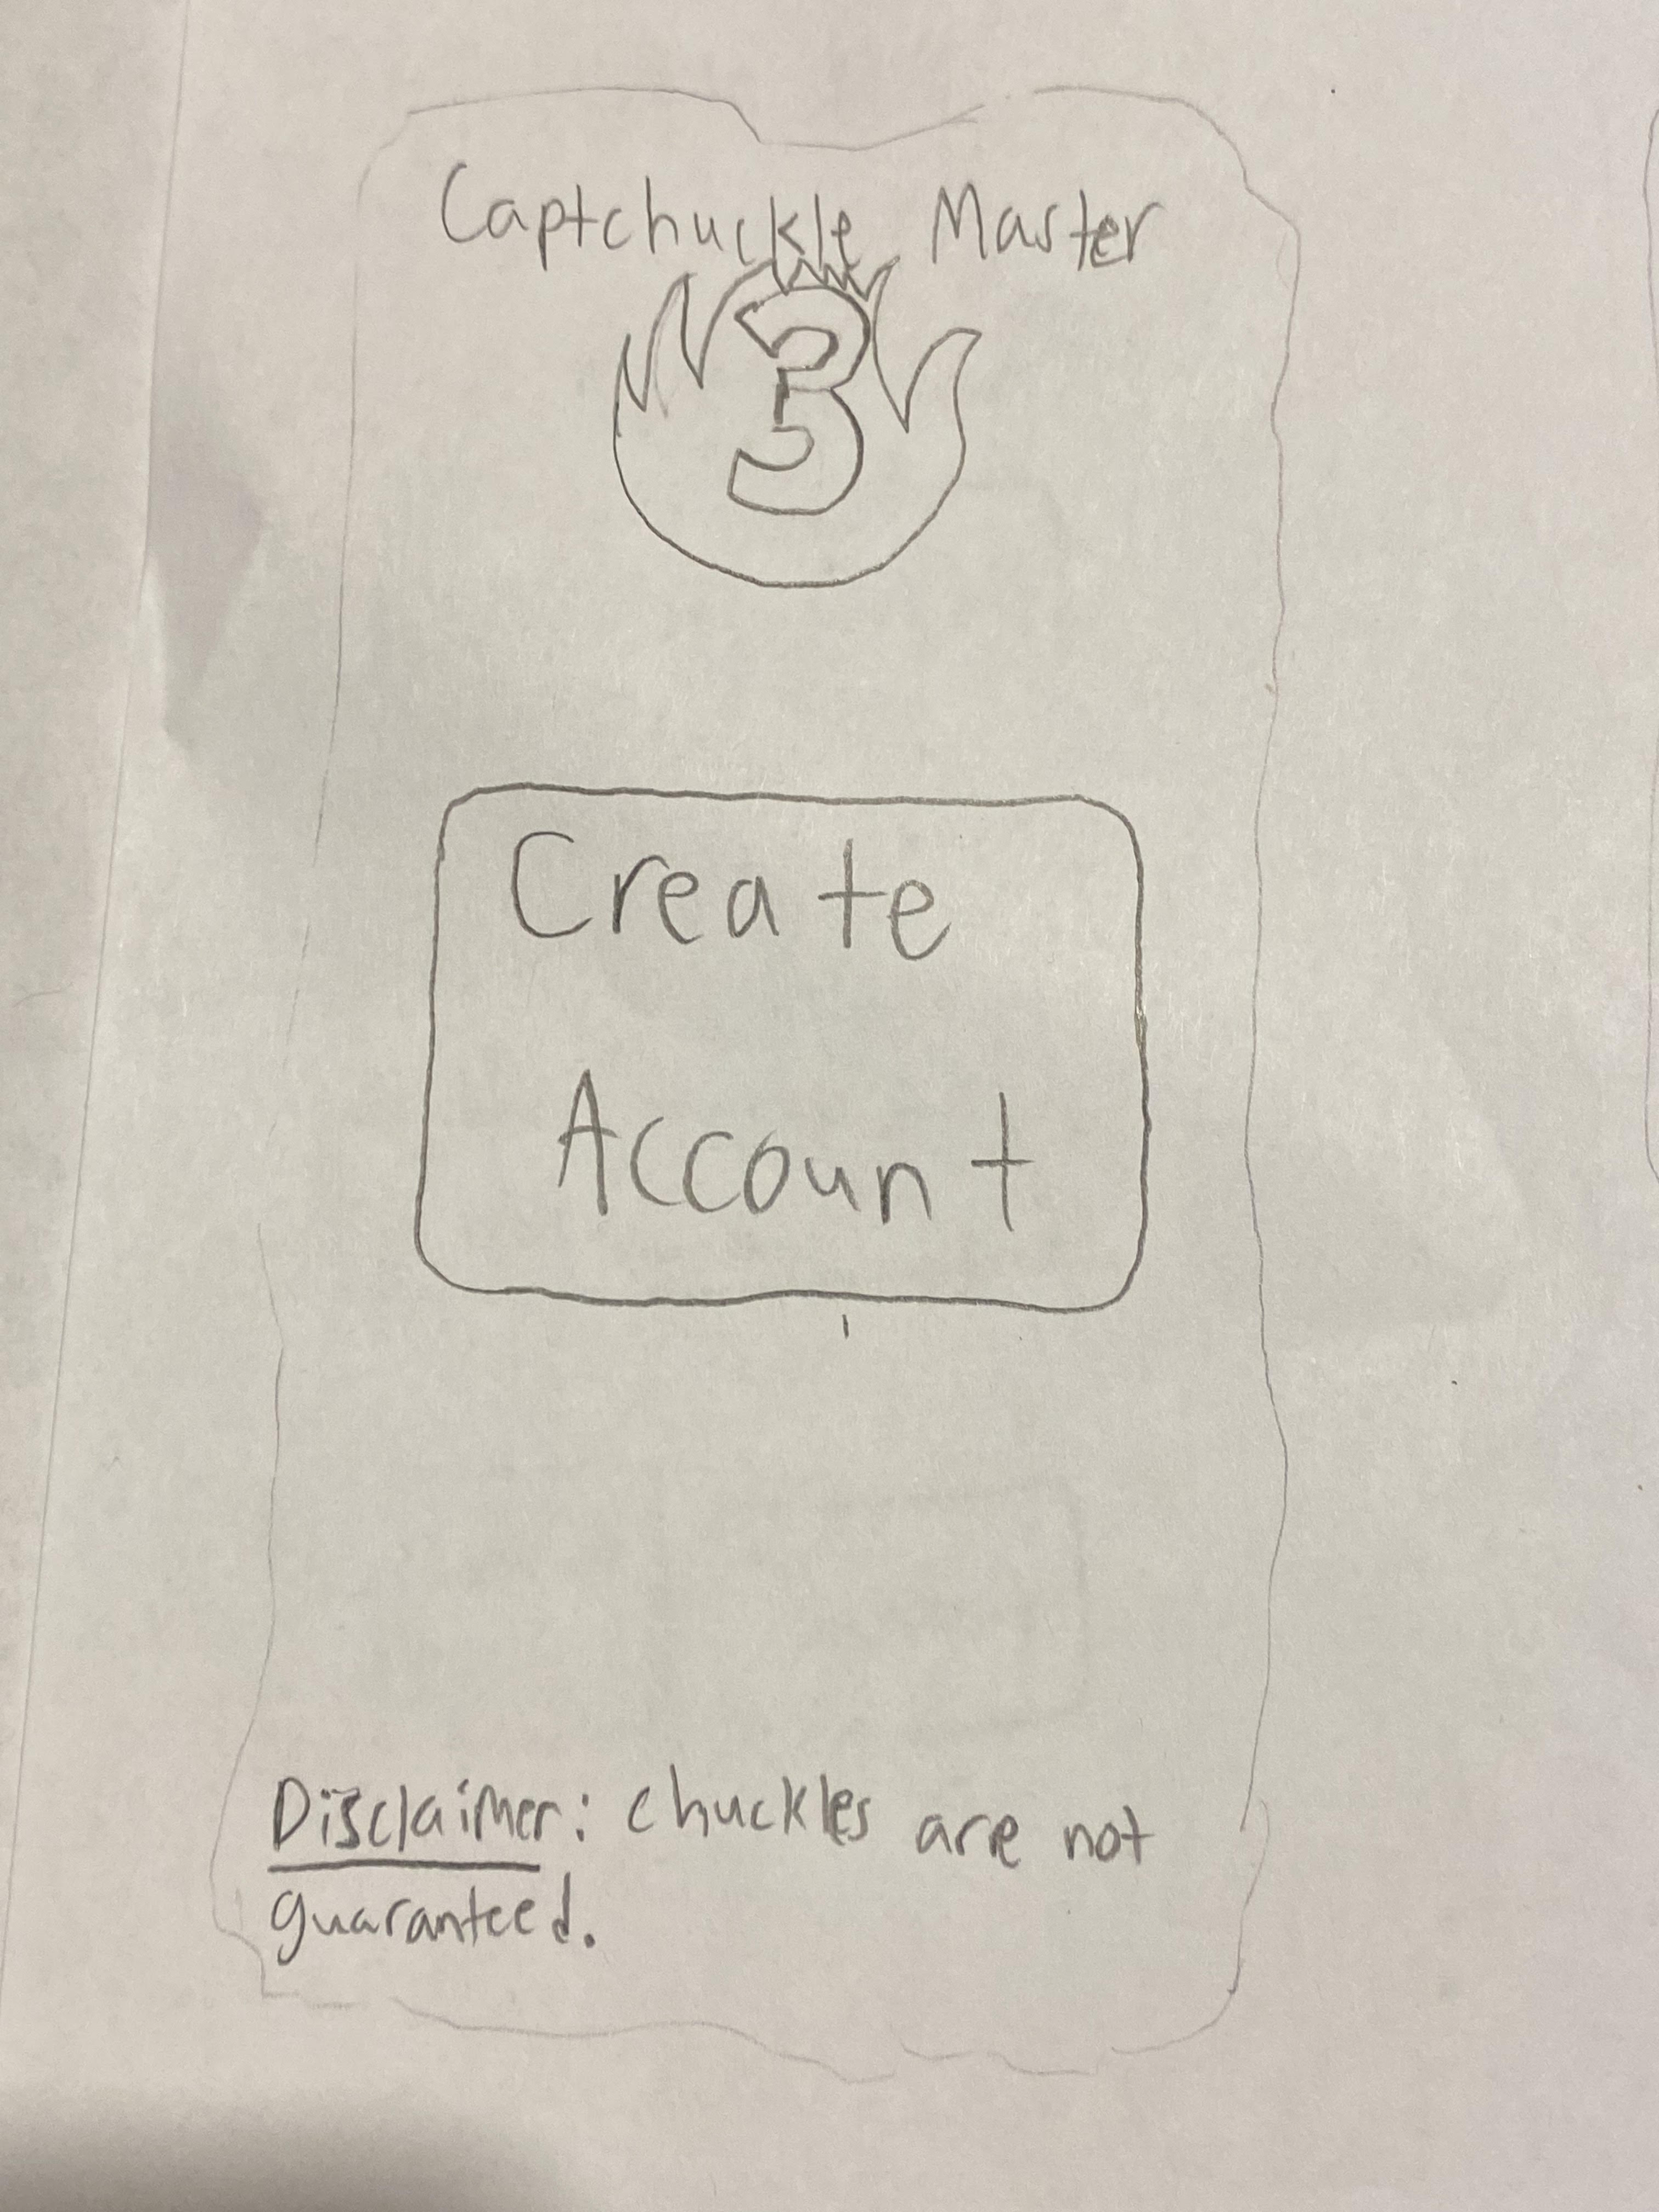 Captchuckle Master
3
Create
Account
Disclaimer: chuckles are not
guaranteed.